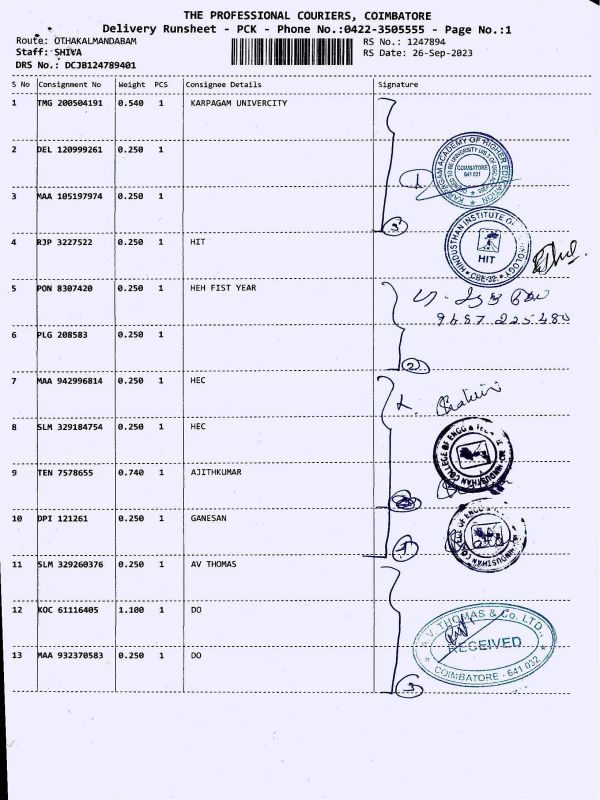 THE PROFESSIONAL COURIERS, COIMBATORE
Delivery Runsheet - PCK - Phone No.:0422-3505555 - Page No.:1
Route: OTHAKALMANDABAM RS No.: 1247894
Staff: SHIVA RS Date: 26-Sep-2023
DRS No.: DCJB124789401
S No Consignment No Weight PCS Consignee Details Signature
1 TMG 200504191 0.540 1 KARPAGAM UNIVERCITY
2 DEL 120999261 0.250 1
KARPAGAM ACADEMY OF HIGHER EDUCATION
COIMBATORE
641 021
3 MAA 105197974 0.250 1
3
HINDUSTHAN INSTITUTE OF TECHNOLOGY
4 RJP 3227522 0.250 1 HIT
HIT
CBE-32
5 PON 8307420 0.250 1 HEH FIST YEAR
9687 225480
6 PLG 208583 0.250 1
2
7 MAA 942996814 0.250 1 HEC
8 SLM 329184754 0.250 1 HEC
HINDUSTHAN COLLEGE OF ENGG &
9 TEN 7578655 0.740 1 AJITHKUMAR
10 DPI 121261 0.250 1 GANESAN
COLLEGE OF ENGG &
HINDUSTHAN
11 SLM 329260376 0.250 1 AV THOMAS
12 KOC 61116405 1.100 1 DO
A.V. THOMAS & Co. LTD.,
RECEIVED
COIMBATORE - 641 032
13 MAA 932370583 0.250 1 DO
3